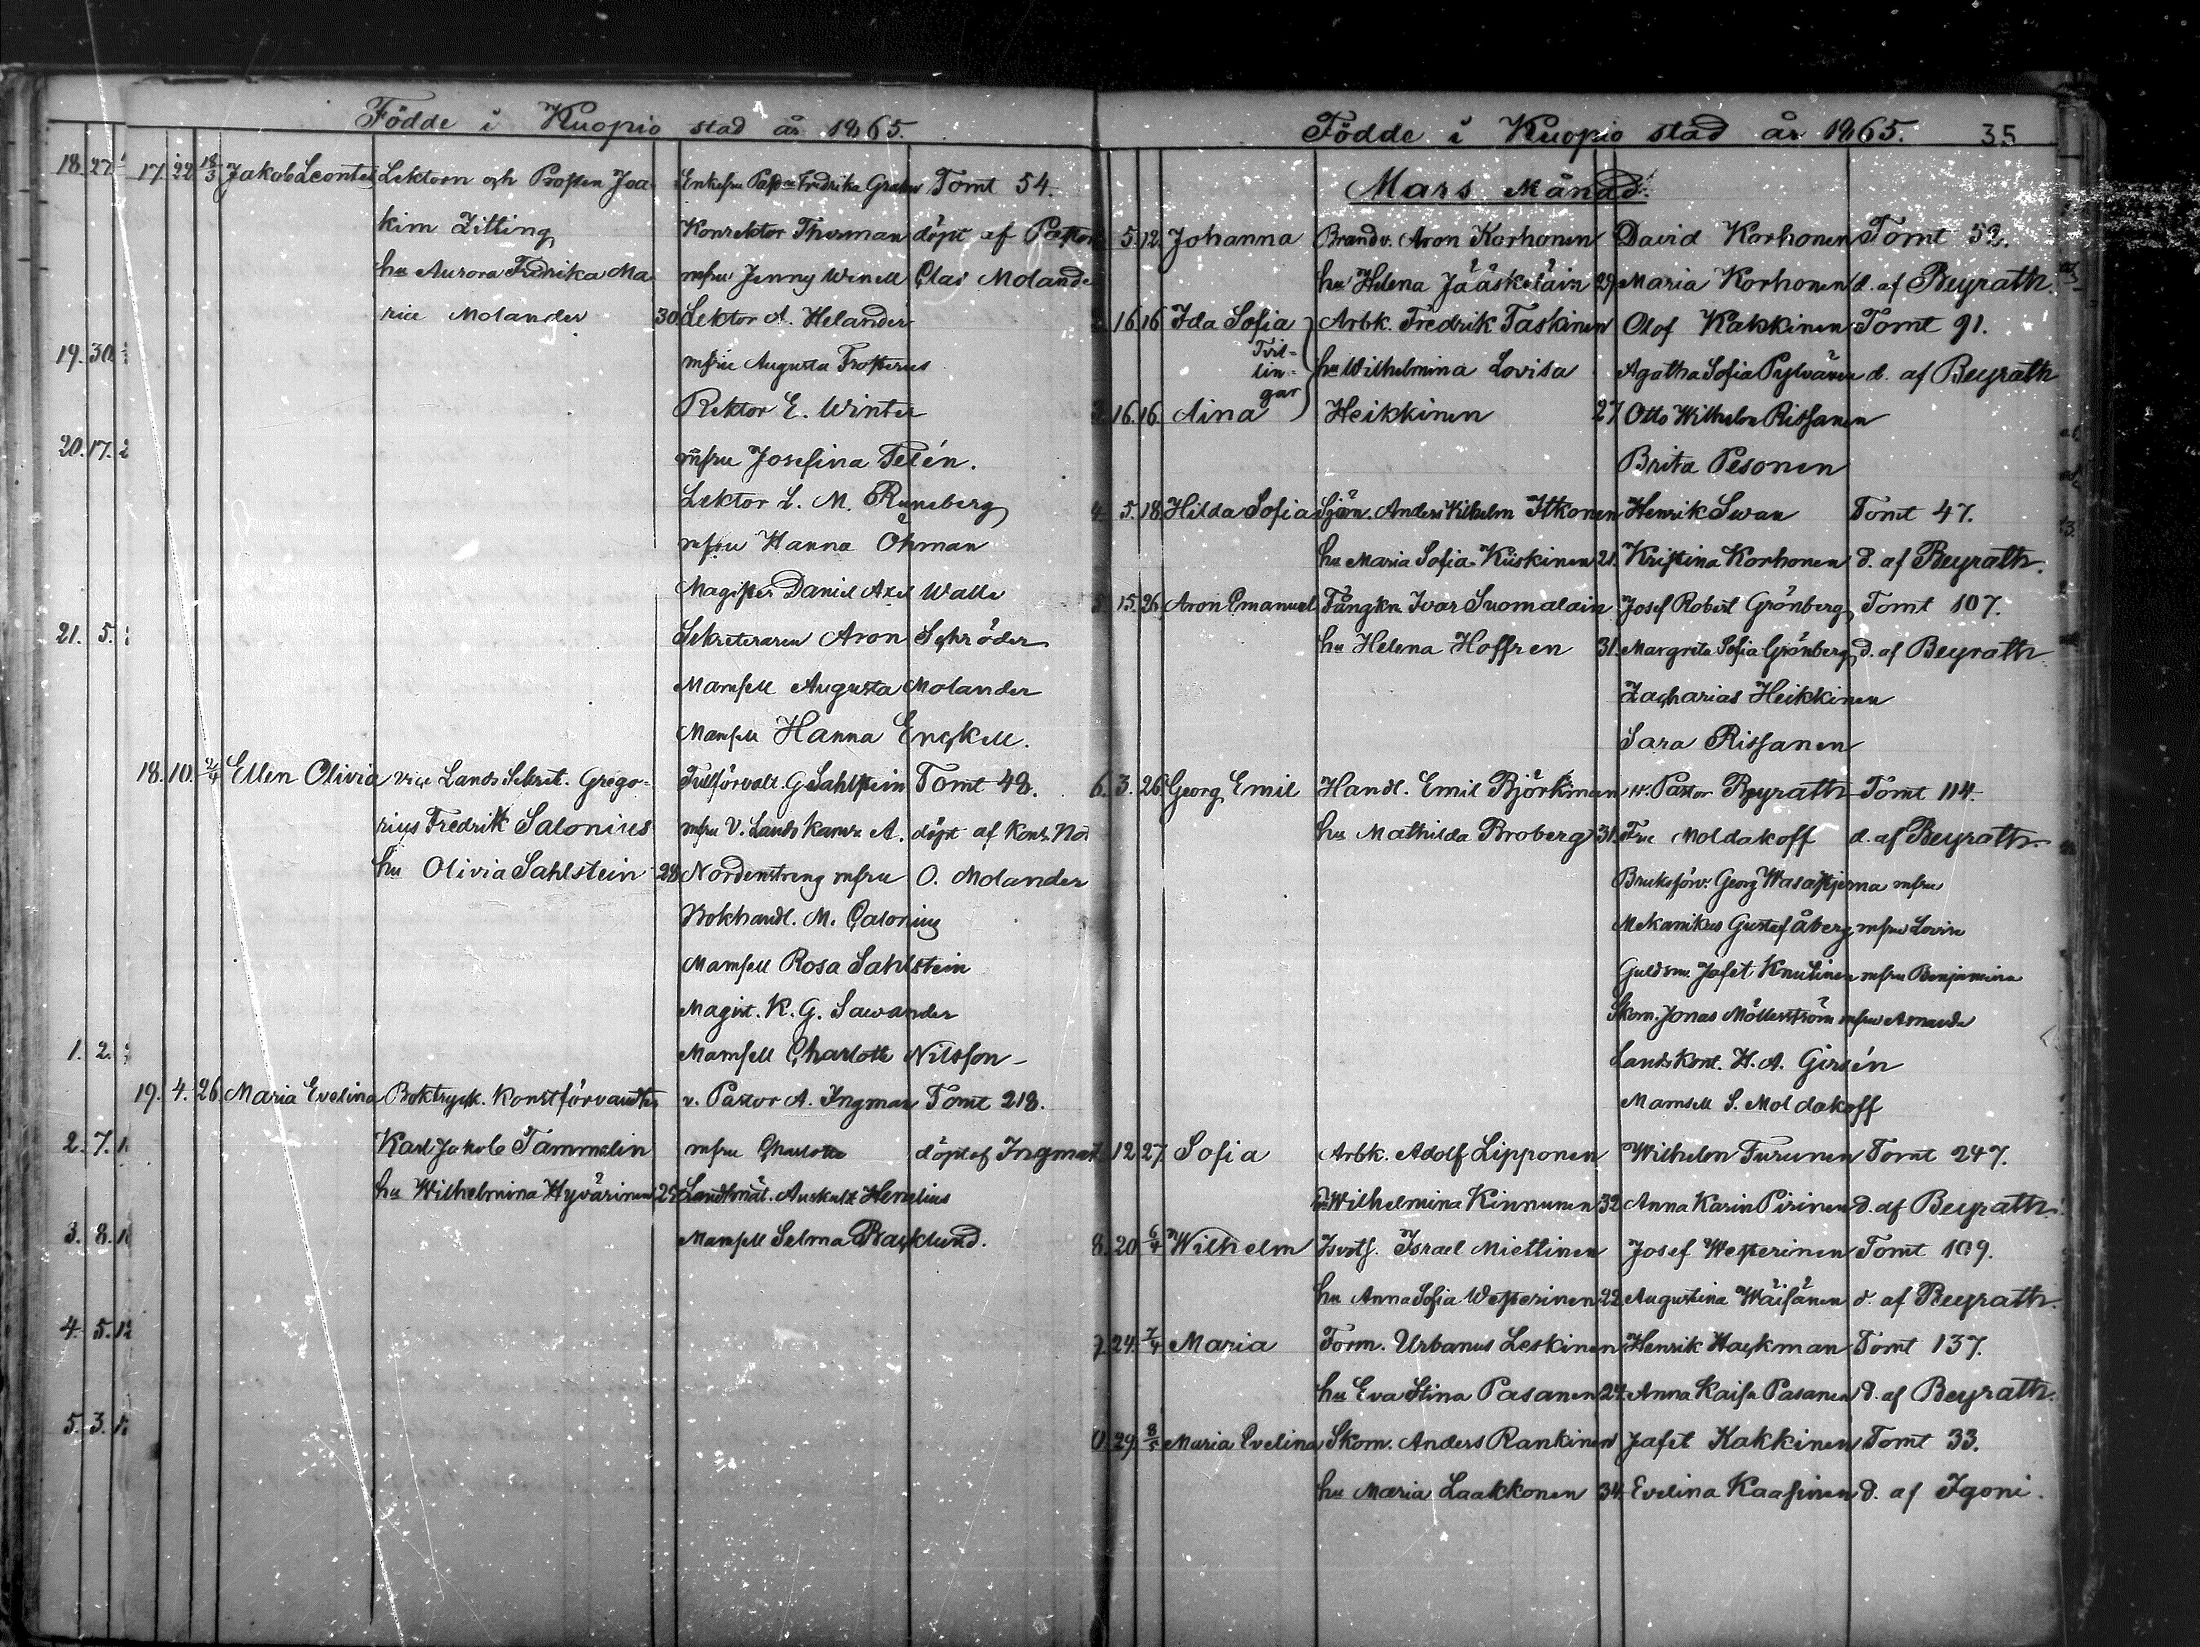 Födde i Kuopio stad år 1865.
17. 22 18/3 Jakob Leontes Lektorn och Prosten Joa Enkefru Fredrika Tomt 54.
kim Zitting Konrektor Therman döpt af Pastor
hu Aurora Fredrika Ma mfru Jenny Winell Clas Molande
ria Molander 30 Lektor A. Helander
mfru Augusta Frosterus
Rektor E. Winter
mfru Josefina Telén.
Lektor L. M. Runeberg
mfru Hanna Öhman
Magister Daniel Axel Walle
Sekreteraren Aron Schröder
Mamsell Augusta Molander
Mamsell Hanna Enckell.
18. 10. 2/4 Ellen Olivia vice Lands Sekret. Grego- Tullförvalt. G Sahlstein Tomt 48.
rius Fredrik Salonius mfru V. Lands Kamr. A. döpt af
hu Olivia Sahlstein 28 Nordenstreng mfru O. Molander
Bokhandl. M.
Mamsell Rosa Sahlstein
Magist. K. G. Sawander
Mamsell Charlotte Nilsson
19. 4. 26. Maria Evelina Boktryck. Konstförvandten v. Pastor A. Ingman Tomt 218.
Karl Jakob Tammelin mfru Charlotte döpt af Ingman
hu Wilhelmina Hyvärinen 25 Landtmät. Auskult.
Mamsell Selma Backlund.
18. 27.
19. 30.
20. 17. 2
21. 5.
1. 2.
2. 7. 1
3. 8. 1
4. 5. 12
5. 3. 1
Födde i Kuopio stad år 1865. 35
Mars Månad.
5. 12. Johanna Brandv. Aron Korhonen David Korhonen Tomt 52.
hu Helena Jääskeläin 29 Maria Korhonen d. af Beyrath.
16 16 Ida Sofia Arbk. Fredrik Taskinen Olof Kakkinen Tomt 91.
Tvil-
lin- hu Wilhelmina Lovisa Agatha Sofia Pylvänen d. af Beyrath
gar
16. 16. Aina Heikkinen 27 Otto Wilhelm Rissanen
Brita Pesonen
4. 5. 18 Hilda Sofia Sjöm. Anders Wilhelm Itkonen Henrik Swan Tomt 47.
hu Maria Sofia Kiiskinen 21. Kristina Korhonen d. af Beyrath.
5. 15. 26 Aron Emanuel Fångkn. Ivar Suomalain Josef Robert Grönberg Tomt 107.
hu Helena Hoffren 31. Margreta Sofia Grönberg d. af Beyrath
Zacharias Heikkinen
Sara Rissanen
6. 3. 26 Georg Emil Handl. Emil Björkman v. Pastor Beyrath Tomt 114.
hu Mathilda Broberg 31. Fru Moldakoff d. af Beyrath.
Bruksförv. Georg Wasastjerna mfru
Mekanikus Gustaf Åberg mfru Lovisa
Guldsm. Jafet Knutinen mfru Benjamina
Skom. Jonas Möllerström mfru Amanda
Lands Kont. H. A. Girsén
Mamsell S. Moldakoff
7. 12. 27. Sofia Arbk. Adolf Lipponen Wilhelm Turunen Tomt 247.
hu Wilhelmina Kinnunen 32 Anna Karin Pirinen d. af Beyrath.
8. 20 6/4 Wilhelm Isvots. Israel Miettinen Josef Westerinen Tomt 109.
hu Anna Sofia Westerinen 22 Augustina Wäisänen d. af Beyrath.
9. 24. 7/4 Maria Form. Urbanus Leskinen Henrik Hackman Tomt 137.
hu Eva Stina Pasanen 24. Anna Kaisa Pasanen d. af Beyrath.
0. 29. 8/5 Maria Evelina Skom. Anders Rankinen Jafet Kakkinen Tomt 33.
hu Maria Laakkonen 34. Evelina Kaasinen d. af Igoni.